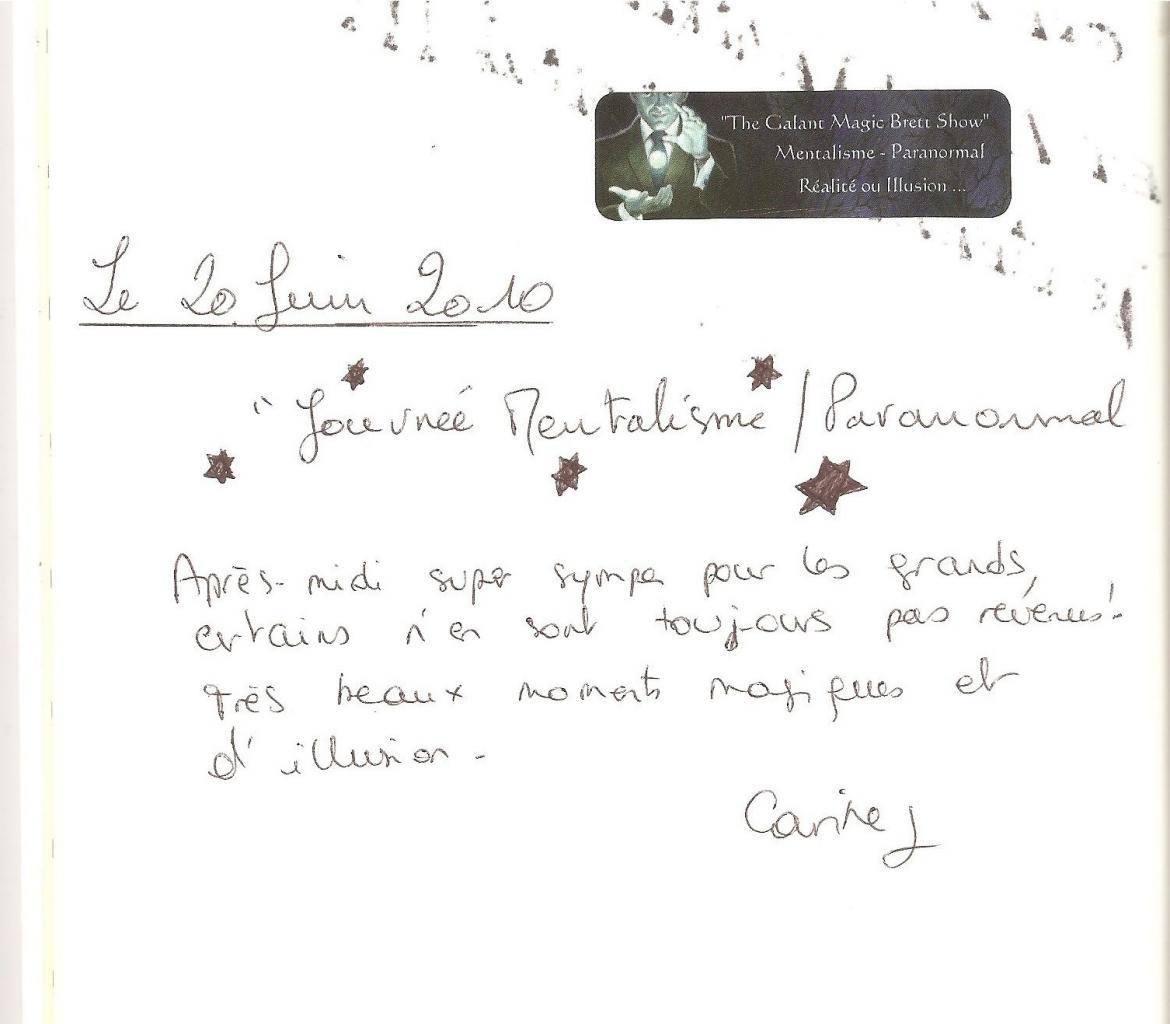 "The Galant Magic Brett Show"
Mentalisme - Paranormal
Réalité ou Illusion ...
Le 20 Juin 2010
" Journéé Mentalisme / Paranormal
Après-midi super sympa pour les grands,
certains n'en sont toujours pas révenus!
très beaux moments magiques et
d'illusion -
Carine J